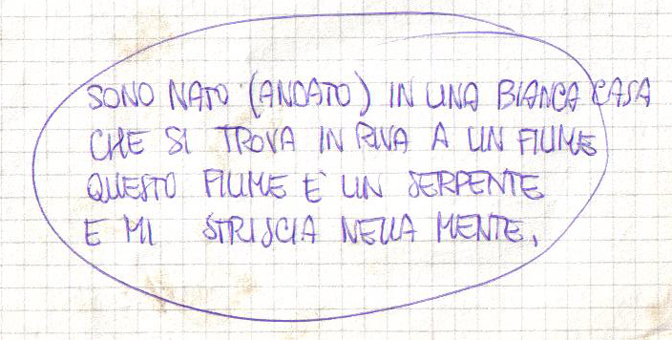 SONO NATO (ANDATO) IN UNA BIANCA CASA
CHE SI TROVA IN RIVA A UN FIUME
QUESTO FIUME E' UN SERPENTE
E MI STRISCIA NELLA MENTE.